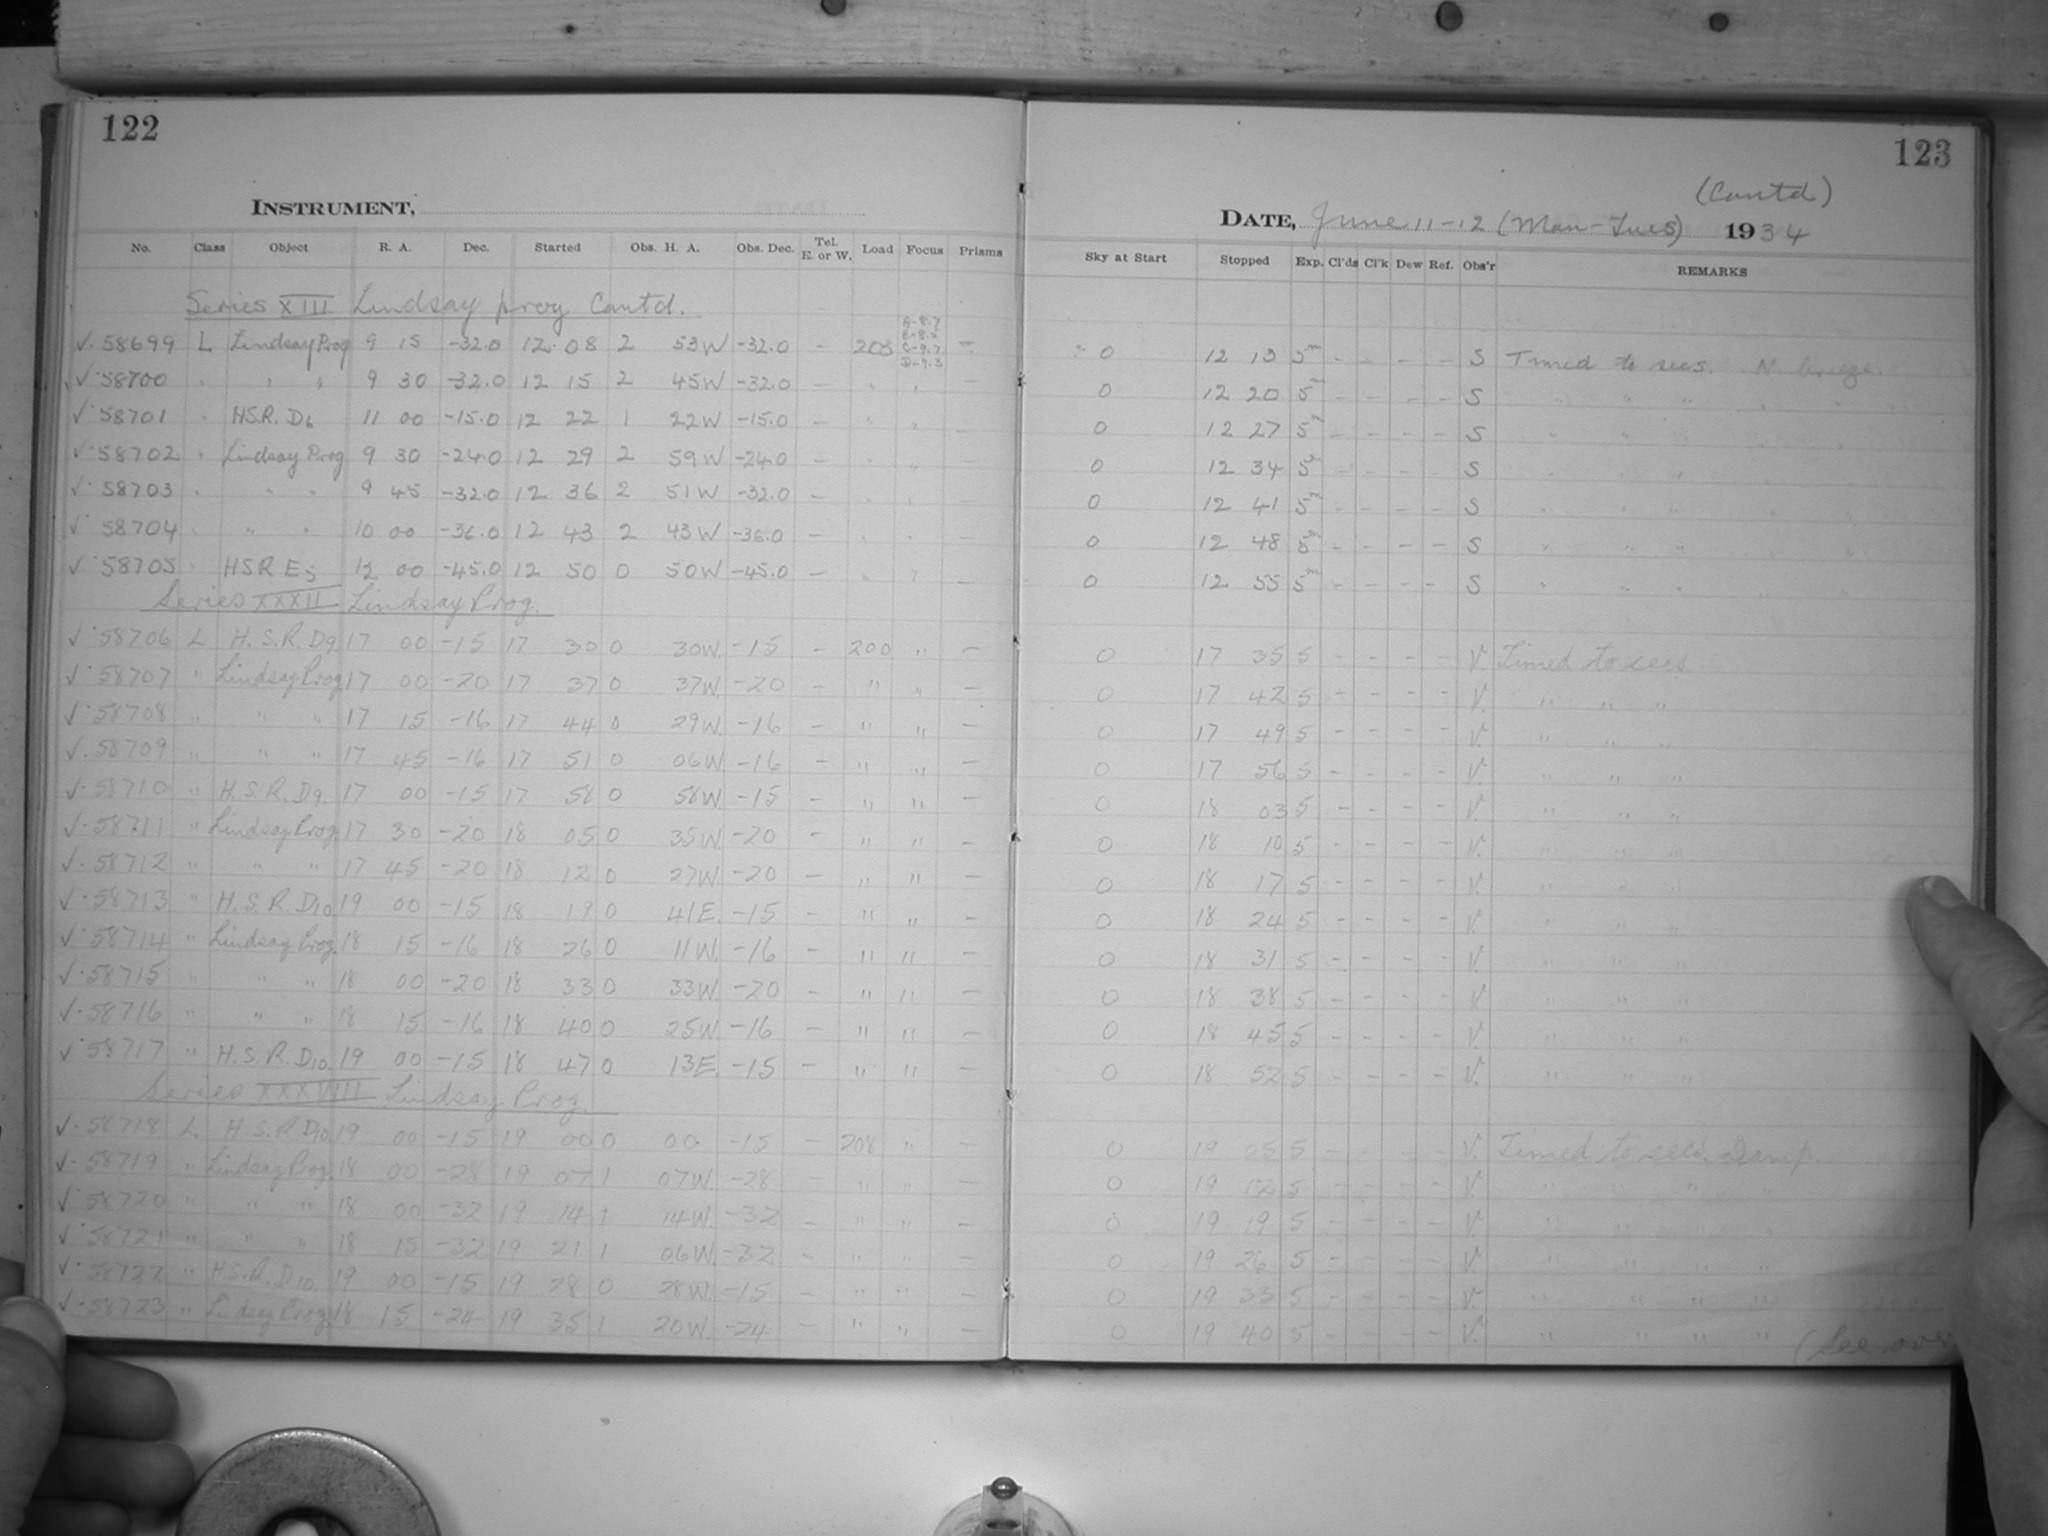 122
INSTRUMENT,
No. Class Object R. A. Dec. Started Obs. H. A. Obs. Dec. Tel. E. or W. Load Focus Prisms
Series XIII Lindsay prog Contd.
✓ 58699 L Lindsay Prog 9 15 -32.0 12 08 2 53W -32.0 - 208 A-8.7 B-8.5 C-9.7 D-9.3 -
✓ 58700 " " " 9 30 -32.0 12 15 2 45W -32.0 - " " -
✓ 58701 " HS.R. D6 11 00 -15.0 12 22 1 22W -15.0 - " " -
✓ 58702 " Lindsay Prog 9 30 -24.0 12 29 2 59W -24.0 - " " -
✓ 58703 " " " 9 45 -32.0 12 36 2 51W -32.0 - " " -
✓ 58704 " " " 10 00 -36.0 12 43 2 43W -36.0 - " " -
✓ 58705 " HSR E5 12 00 -45.0 12 50 0 50W -45.0 - " " -
Series XXXII Lindsay Prog.
✓ 58706 L H.S.R. D9 17 00 -15 17 30 0 30W. -15 - 200 " -
✓ 58707 " Lindsay Prog 17 00 -20 17 37 0 37W. -20 - " " -
✓ 58708 " " " 17 15 -16 17 44 0 29W. -16 - " " -
✓ 58709 " " " 17 45 -16 17 51 0 06W. -16 - " " -
✓ 58710 " H.S.R. D9. 17 00 -15 17 58 0 58W. -15 - " " -
✓ 58711 " Lindsay Prog. 17 30 -20 18 05 0 35W. -20 - " " -
✓ 58712 " " " 17 45 -20 18 12 0 27W. -20 - " " -
✓ 58713 " H.S.R. D10. 19 00 -15 18 19 0 41E. -15 - " " -
✓ 58714 " Lindsay Prog. 18 15 -16 18 26 0 11W. -16 - " " -
✓ 58715 " " " 18 00 -20 18 33 0 33W. -20 - " " -
✓ 58716 " " " 18 15 -16 18 40 0 25W. -16 - " " -
✓ 58717 " H.S.R. D10. 19 00 -15 18 47 0 13E. -15 - " " -
Series XXXVIII Lindsay Prog.
✓ 58718 L H.S.R D10 19 00 -15 19 00 0 00 -15 - 208 " -
✓ 58719 " Lindsay Prog. 18 00 -28 19 07 1 07W. -28 - " " -
✓ 58720 " " " 18 00 -32 19 14 1 14W. -32 - " " -
✓ 58721 " " " 18 15 -32 19 21 1 06W. -32 - " " -
✓ 58722 " H.S.R. D10. 19 00 -15 19 28 0 28W. -15 - " " -
✓ 58723 " Lindsay Prog. 18 15 -24 19 35 1 20W. -24 - " " -
123
(Contd)
DATE, June 11-12 (Mon-Tues) 1934
Sky at Start Stopped Exp. Cl'ds Cl'k Dew Ref. Obs'r REMARKS
0 12 13 5m - - - - S Timed to secs. N. breeze.
0 12 20 5m - - - - S " " " " "
0 12 27 5m - - - - S " " "
0 12 34 5m - - - - S " " "
0 12 41 5m - - - - S " " " " "
0 12 48 5m - - - - S " " " " "
0 12 55 5m - - - - S " " " " "
0 17 35 5 - - - - V. Timed to secs
0 17 42 5 - - - - V. " " "
0 17 49 5 - - - - V. " " "
0 17 56 5 - - - - V. " " "
0 18 03 5 - - - - V. " " "
0 18 10 5 - - - - V. " " "
0 18 17 5 - - - - V. " " "
0 18 24 5 - - - - V. " " "
0 18 31 5 - - - - V. " " "
0 18 38 5 - - - - V. " " "
0 18 45 5 - - - - V. " " "
0 18 52 5 - - - - V. " " "
0 19 05 5 - - - - V. Timed to secs. Damp.
0 19 12 5 - - - - V. " " " "
0 19 19 5 - - - - V. " " " "
0 19 26 5 - - - - V. " " " "
0 19 33 5 - - - - V. " " " "
0 19 40 5 - - - - V. " " " "
(See over